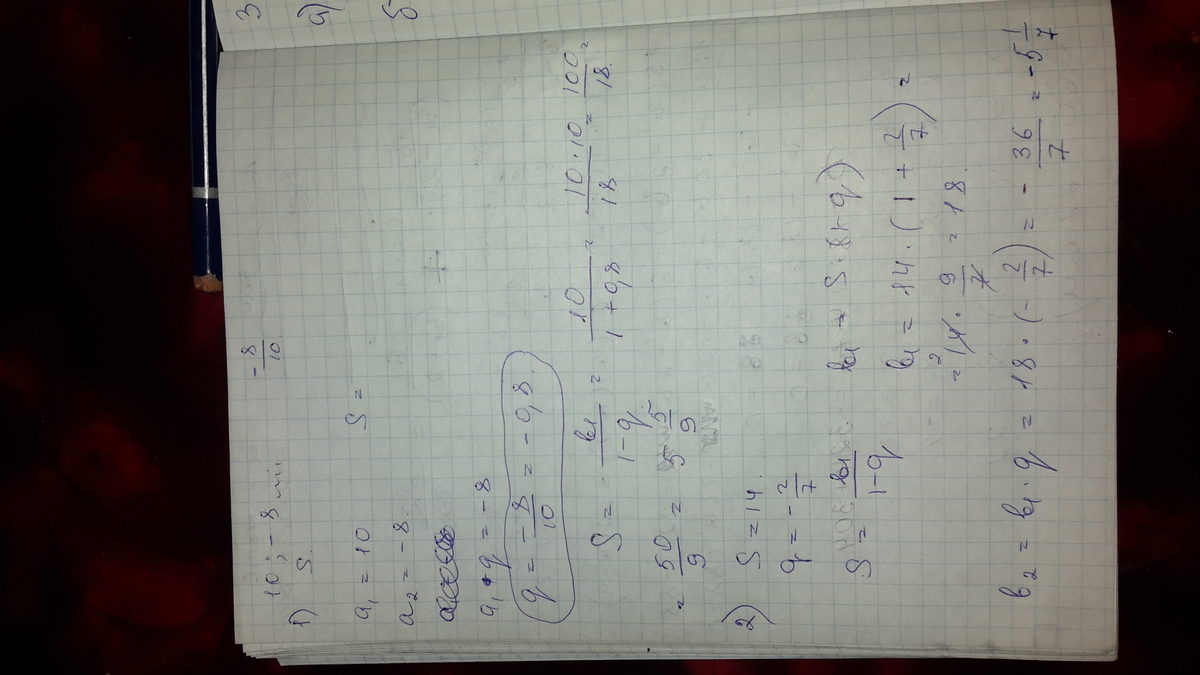 1) 10; -8 ... -8/10
S
a₁ = 10 S =
a₂ = -8
a₁ • q = -8
q = -8/10 = -0,8
S = b₁/(1-q) = 10/(1+0,8) = 10·10/18 = 100/18 =
= 50/9 = 5 5/9
2) S = 14
q = -2/7
S = b₁/(1-q) b₁ = S·(1-q)
b₁ = 14·(1 + 2/7) =
= 14 · 9/7 = 18
b₂ = b₁·q = 18·(-2/7) = -36/7 = -5 1/7
3
а)
б